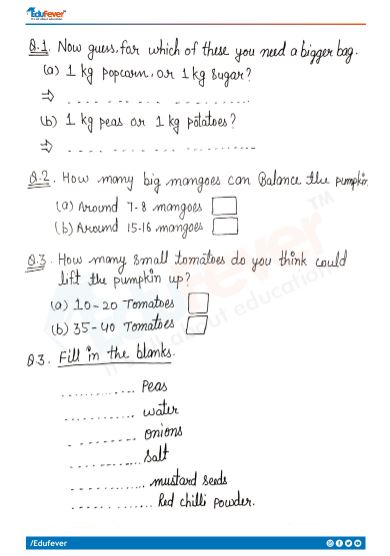 Edufever
Q.1. Now guess, for which of these you need a bigger bag.
(a) 1 kg popcorn, or 1 kg sugar?
⇒ .......................
(b) 1 kg peas or 1 kg potatoes?
⇒ .......................
Q.2. How many big mangoes can Balance the pumpkin
(a) Around 7-8 mangoes
(b) Around 15-16 mangoes
Q.3. How many small tomatoes do you think could
lift the pumpkin up?
(a) 10-20 Tomatoes
(b) 35-40 Tomatoes
Q3. Fill in the blanks.
............ Peas
............ water
............ onions
............ salt
............ mustard seeds
............ Red chilli powder.
/Edufever